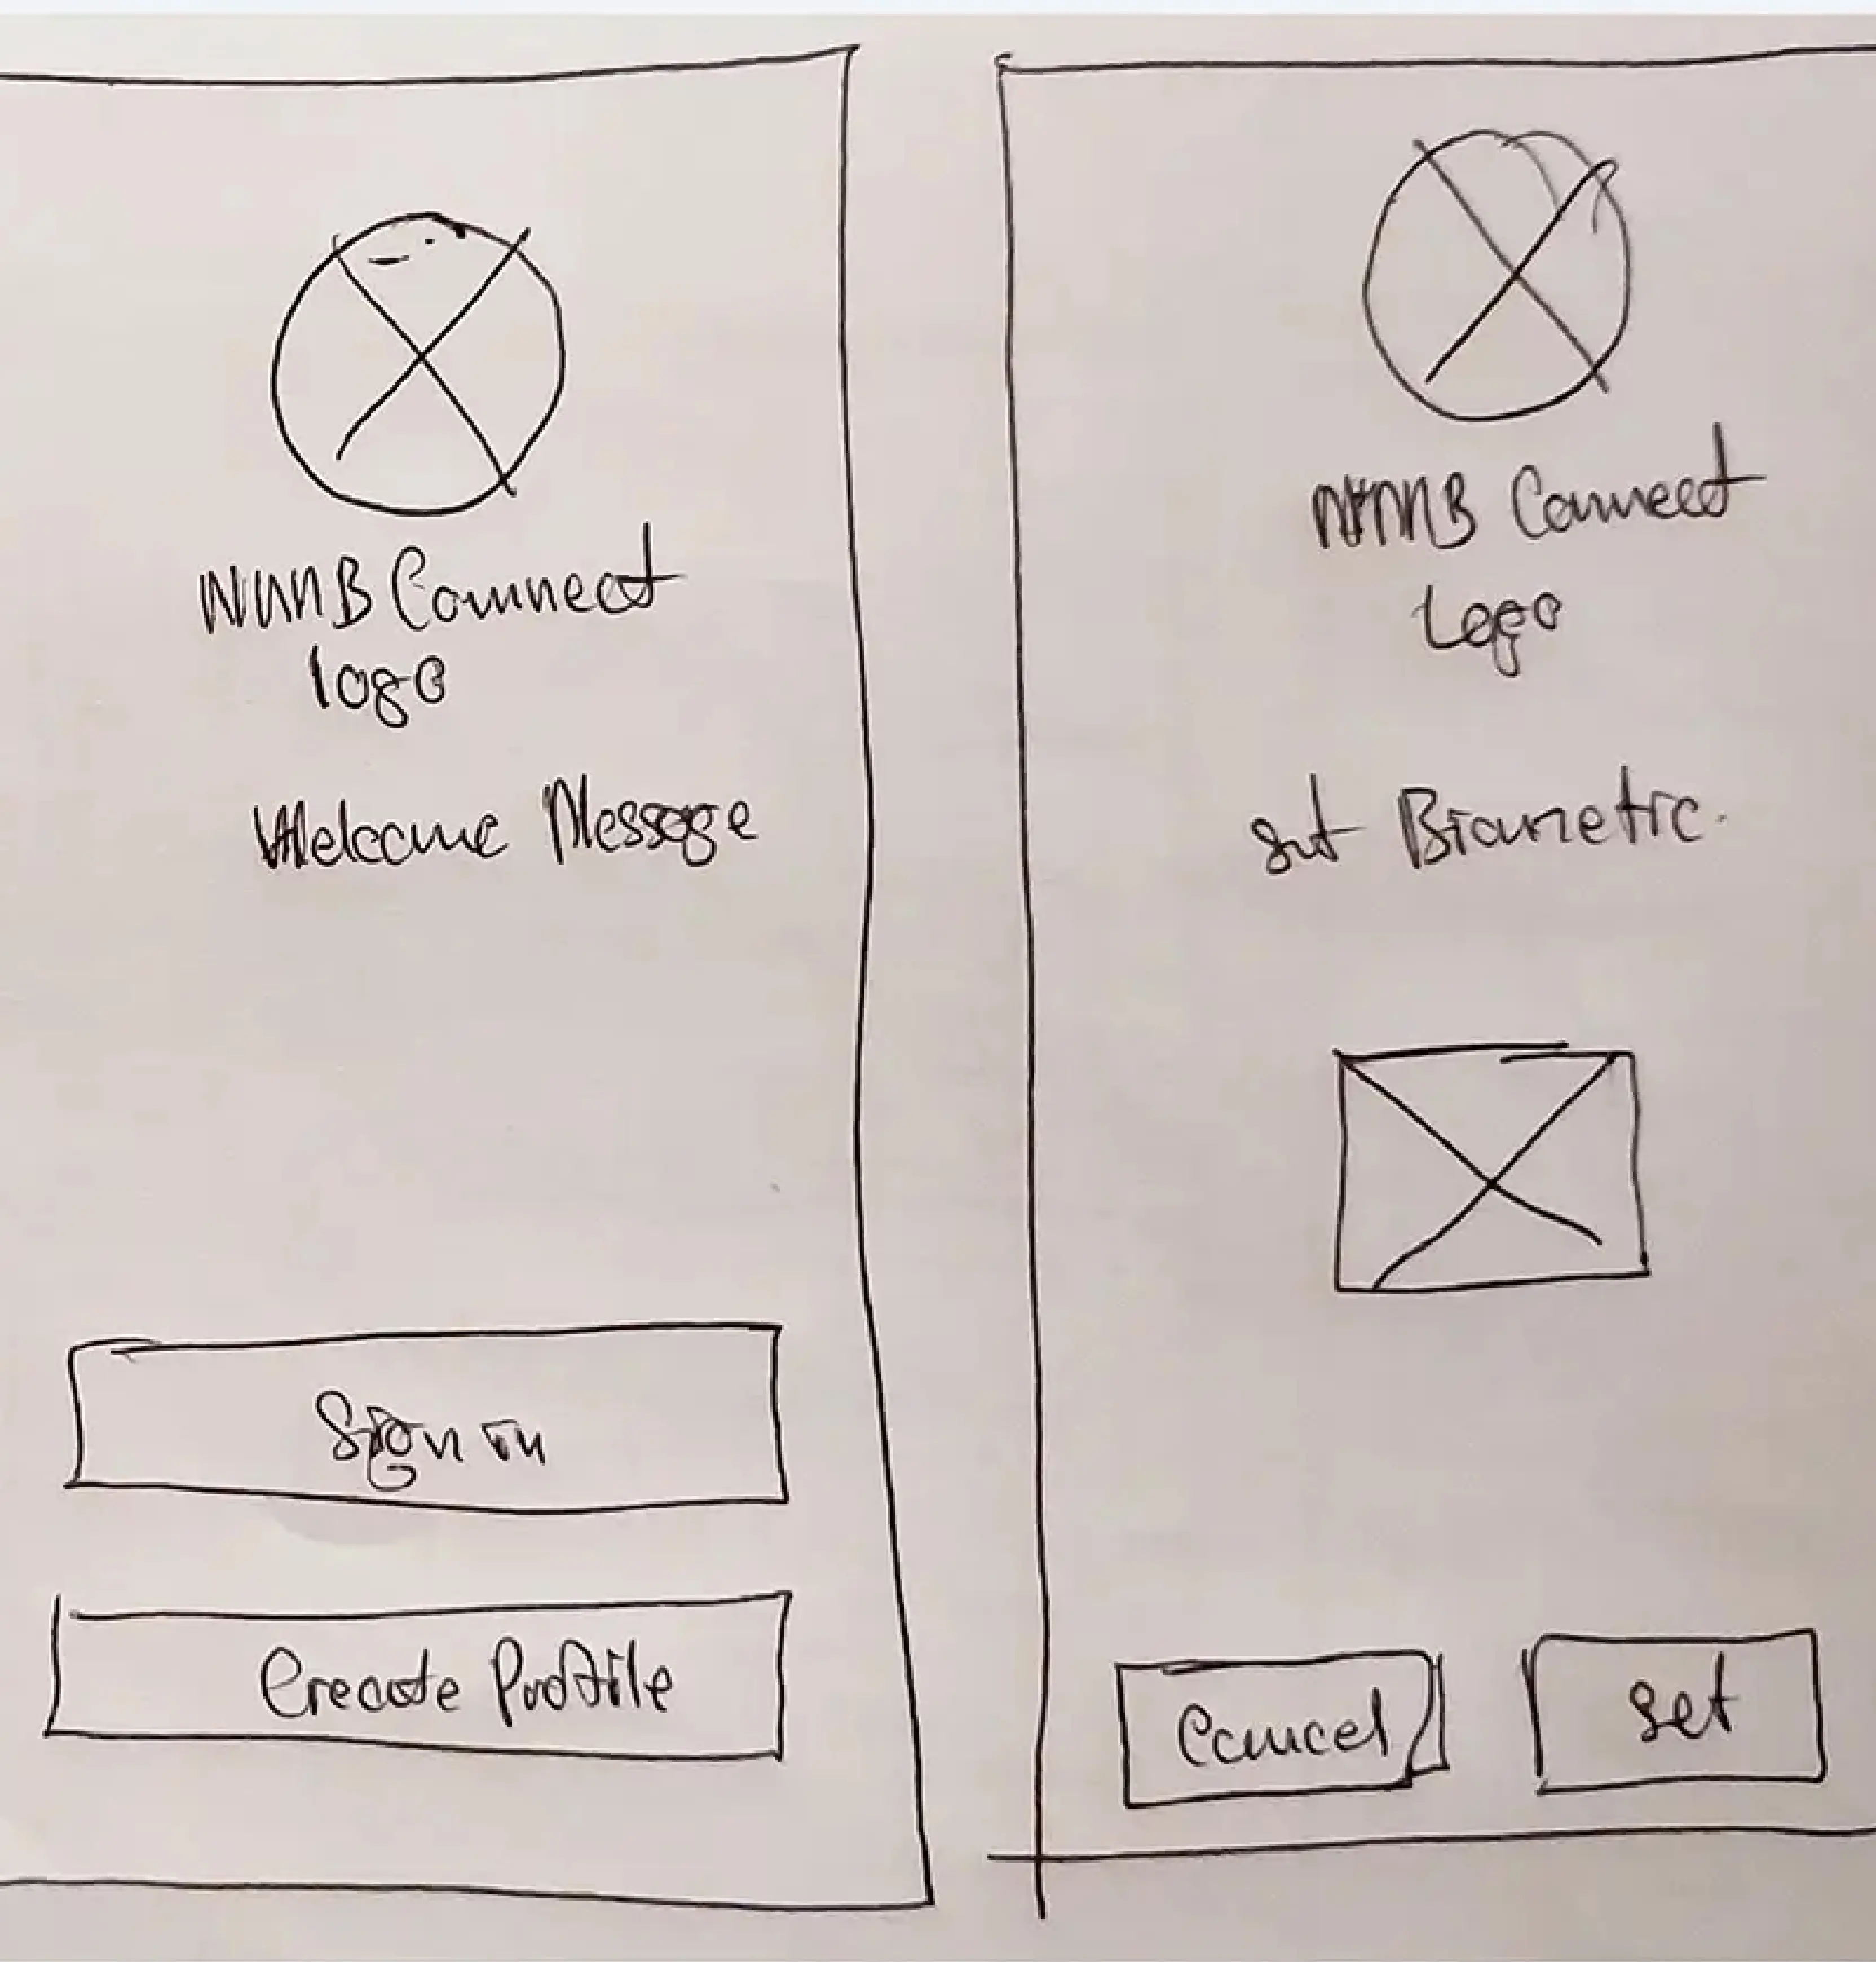 NMMB Connect
logo
Welcome Message
Sign in
Create Profile
NMMB Connect
Logo
set Biometric.
Cancel
set